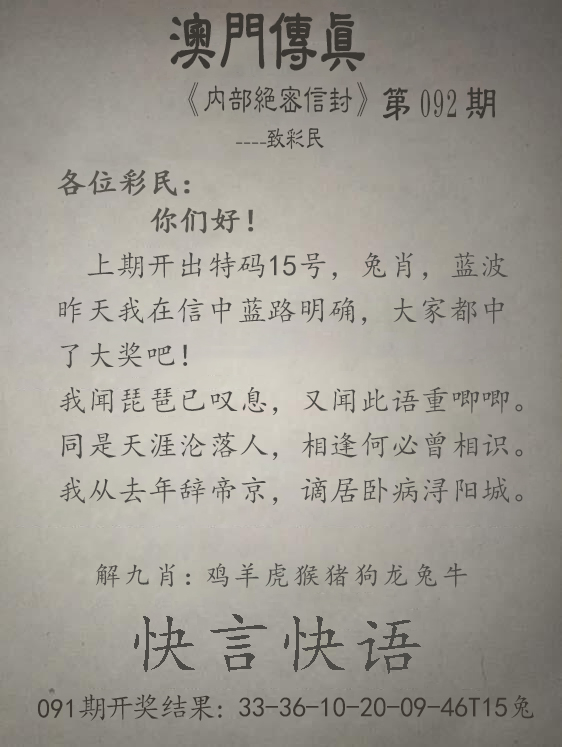 澳門傳真
《内部絕密信封》第092期
----致彩民
各位彩民：
你们好！
上期开出特码15号，兔肖，蓝波
昨天我在信中蓝路明确，大家都中
了大奖吧！
我闻琵琶已叹息，又闻此语重唧唧。
同是天涯沦落人，相逢何必曾相识。
我从去年辞帝京，谪居卧病浔阳城。
解九肖：鸡羊虎猴猪狗龙兔牛
快言快语
091期开奖结果：33-36-10-20-09-46T15兔